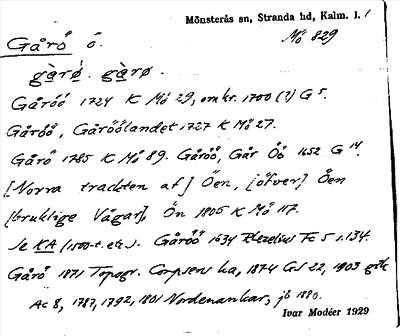 Mönsterås sn, Stranda hd, Kalm. l. 1
Gårö ö. Mö 829
gàrǿ. gàrø.
Gåröö 1724 K Mö 29, omkr. 1700 (?) G 5.
Gåröö, Gåröölandet 1727 K Mö 27.
Gårö 1785 K Mö 89. Gåröö, Går Öö 1652 G 14.
[Norra trackten af] Öen, [öfver] Öen
[bruklige Vägar], Ön 1805 K Mö 117.
Se KA (1500-t. etc.). Gåröö 1634 Rhezelius Fc 5 s. 134.
Gårö 1871 Topogr. Corpsens ka, 1874 GS 22, 1903 gtk
Ac 8, 1787, 1792, 1801 Nordenankar, jb 1880.
Ivar Modéer 1929